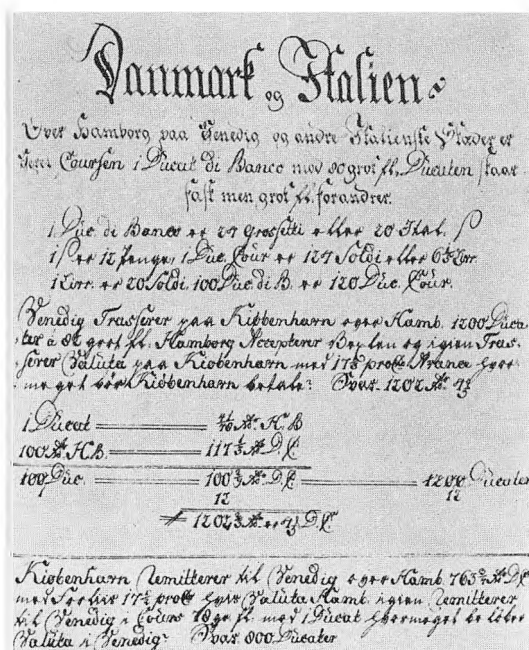 Danmark og Italien
Over Hamborg paa Venedig og andre Italienske Stæder er
Coursen i Ducat di Banco mod 80 grot fl. Ducaten staar
fast men grot fl. forandrer.
1 Duc. di Banco er 24 Grossetti eller 20 Ital. ß
1 ß er 12 Penge, 1 Duc. Cour er 124 Soldi eller 6 1/5 Lirr.
1 Lirr. er 20 Soldi. 100 Duc. di B. er 120 Duc. Cour.
Venedig Trasserer paa Kiöbenhavn over Hamb. 1200 Duca-
ter à grot fl. Hamborg Accepterer og igien Tras-
serer Valuta paa Kiöbenhavn med 17½ proto Avance hvor-
meget bör Kiöbenhavn betale? Svar. 1202
1 Ducat H. B
100 H. B. 117½ D. C.
100 Duc. 100 D. C. 1200 Ducater
12 12
1202 D. C.
Kiöbenhavn Remitterer til Venedig over Hamb. 763 D. C.
med 17½ proto hvis Valuta Hamb. igien Remitterer
til Venedig i Cours grot fl. mod 1 Ducat hvormeget er
Valuta i Venedig? Svar 800 Ducater